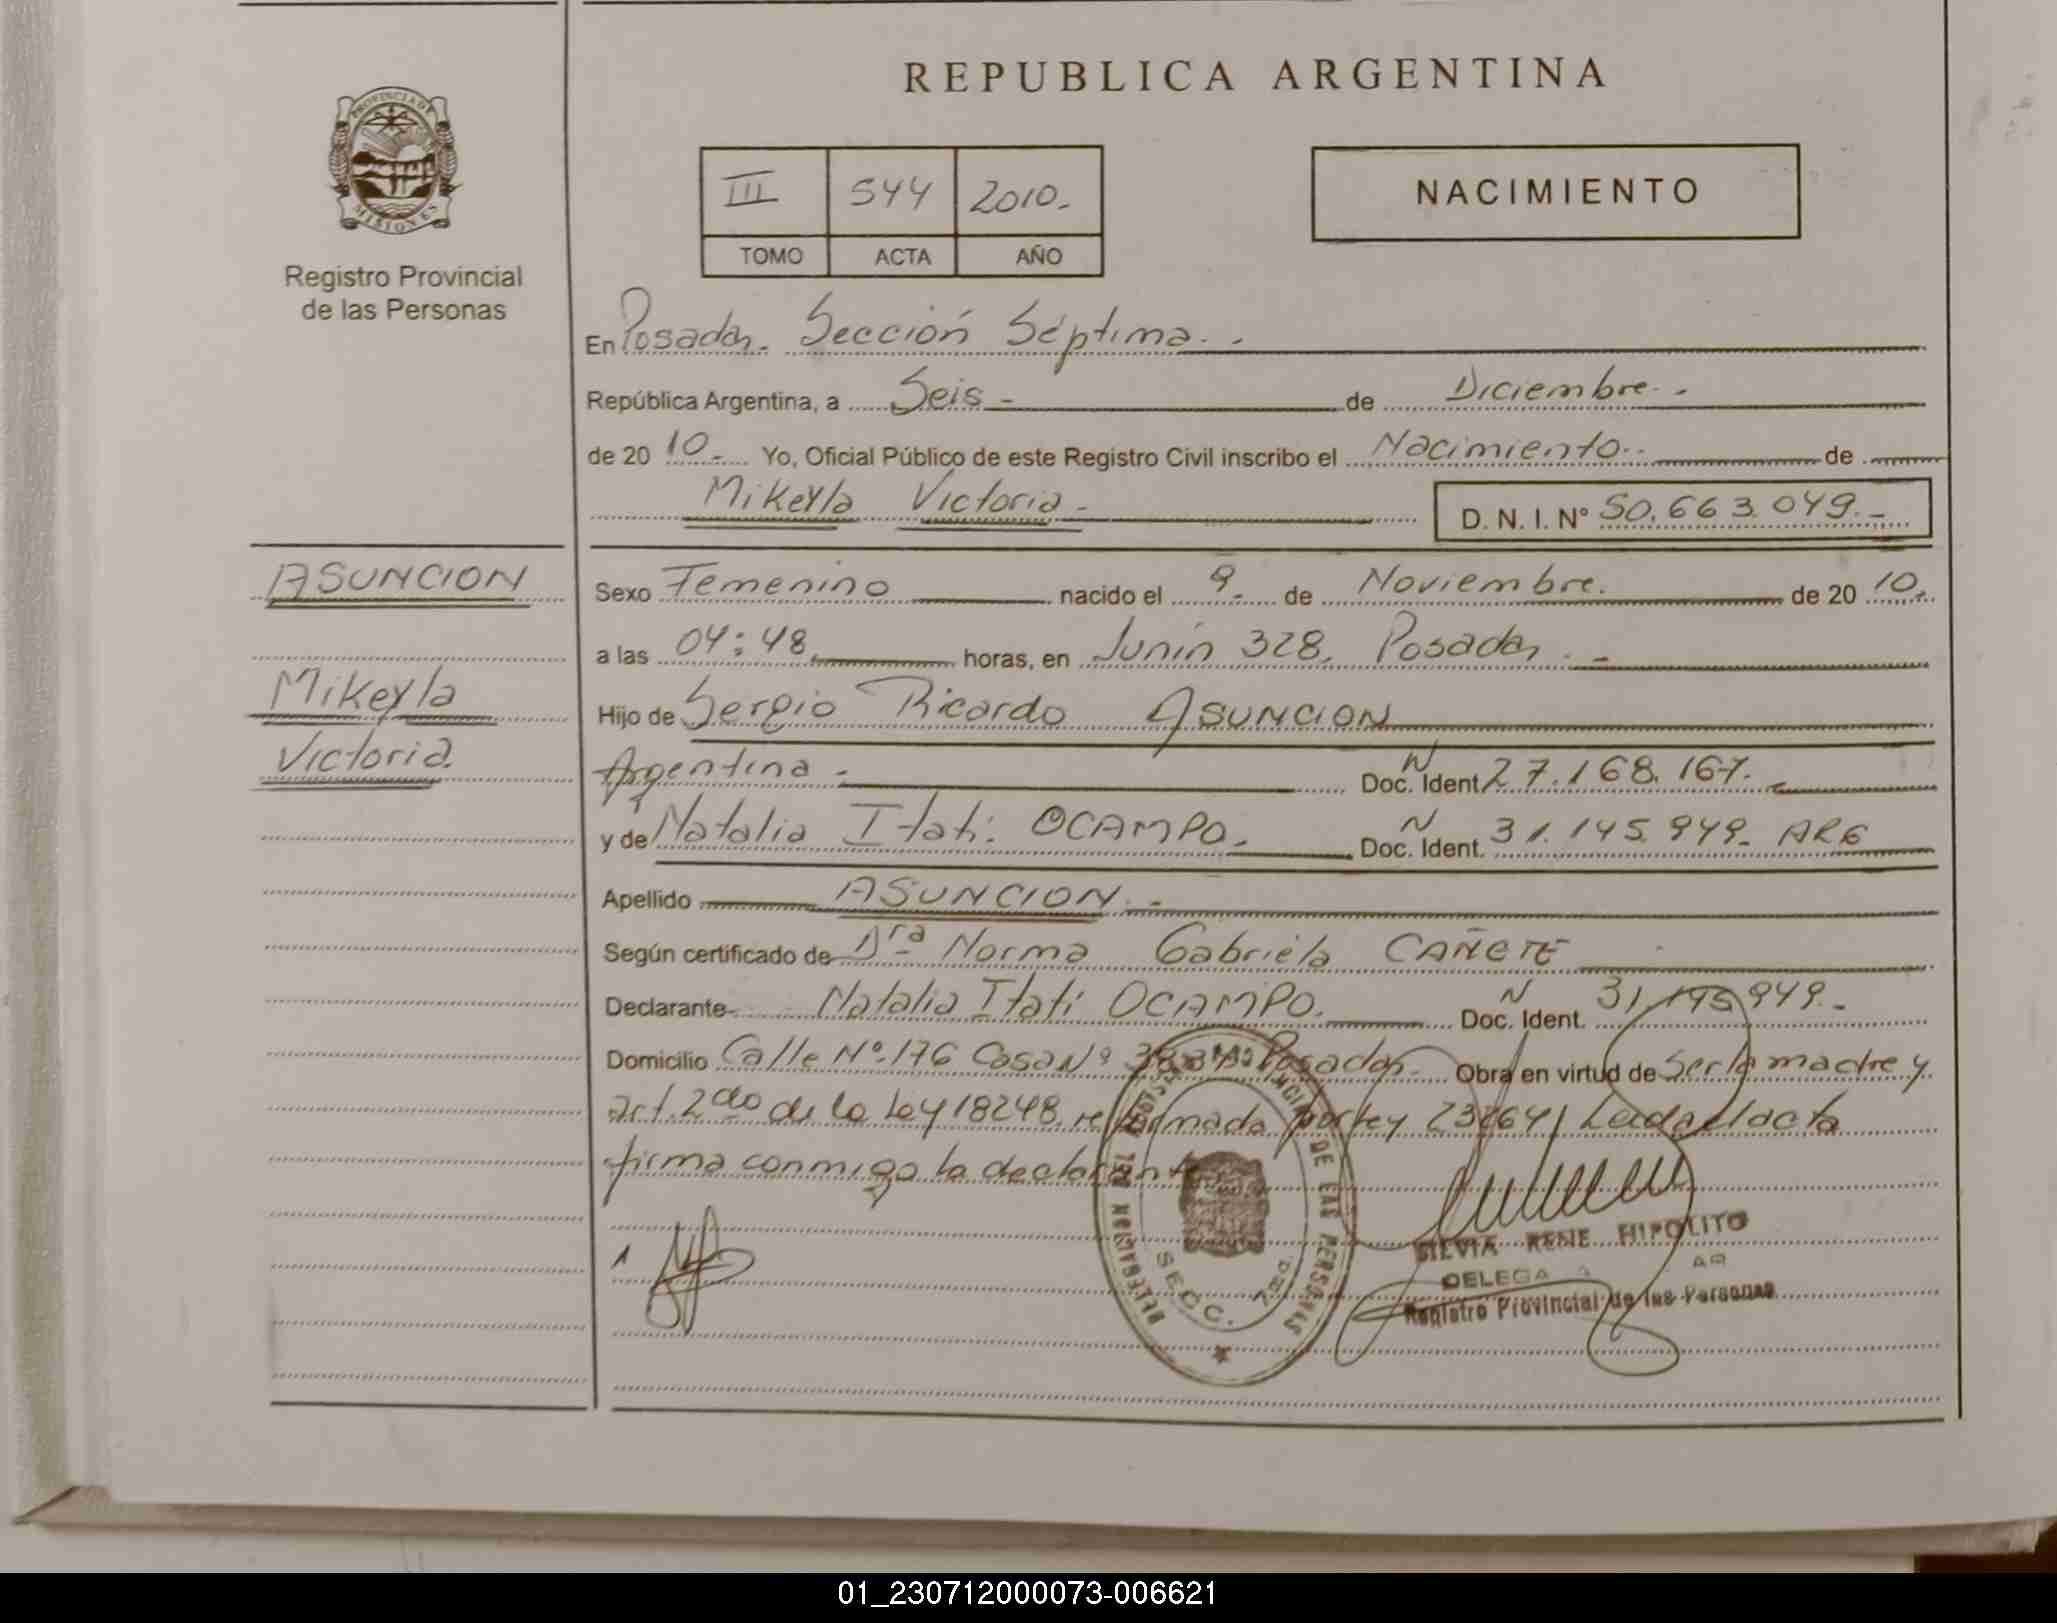 REPUBLICA ARGENTINA
PROVINCIA DE
MISIONES
Registro Provincial
de las Personas
III 544 2010.-
TOMO ACTA AÑO
NACIMIENTO
En Posadas. Sección Séptima.-
República Argentina, a Seis - de Diciembre.-
de 20 10.- Yo, Oficial Público de este Registro Civil inscribo el Nacimiento.. de
Mikeyla Victoria.- D. N. I. N° 50.663.049.-
ASUNCION
Mikeyla
Victoria.
Sexo Femenino nacido el 9.- de Noviembre. de 20 10.-
a las 04:48. horas, en Junín 328. Posadas.-
Hijo de Sergio Ricardo ASUNCION
Argentina.- Doc. Ident. N 27.168.167.-
y de Natalia Itatí. OCAMPO.- Doc. Ident. N 31.145.949.- ARG
Apellido ASUNCION.-
Según certificado de Dra Norma Gabriela CAÑETE
Declarante Natalia Itatí OCAMPO. Doc. Ident. N 31.145.949.-
Domicilio Calle N° 176 Casa N° Posadas.- Obra en virtud de Ser la madre y
art. 2do de la Ley 18248. reformada por ley 23264/ Leída el acta
firma conmigo la declarante
DELEGACION DEL REGISTRO PROVINCIAL DE LAS PERSONAS
SECC. 7ma.
SILVIA RENE HIPOLITO
DELEGADA
Registro Provincial de las Personas
01_230712000073-006621